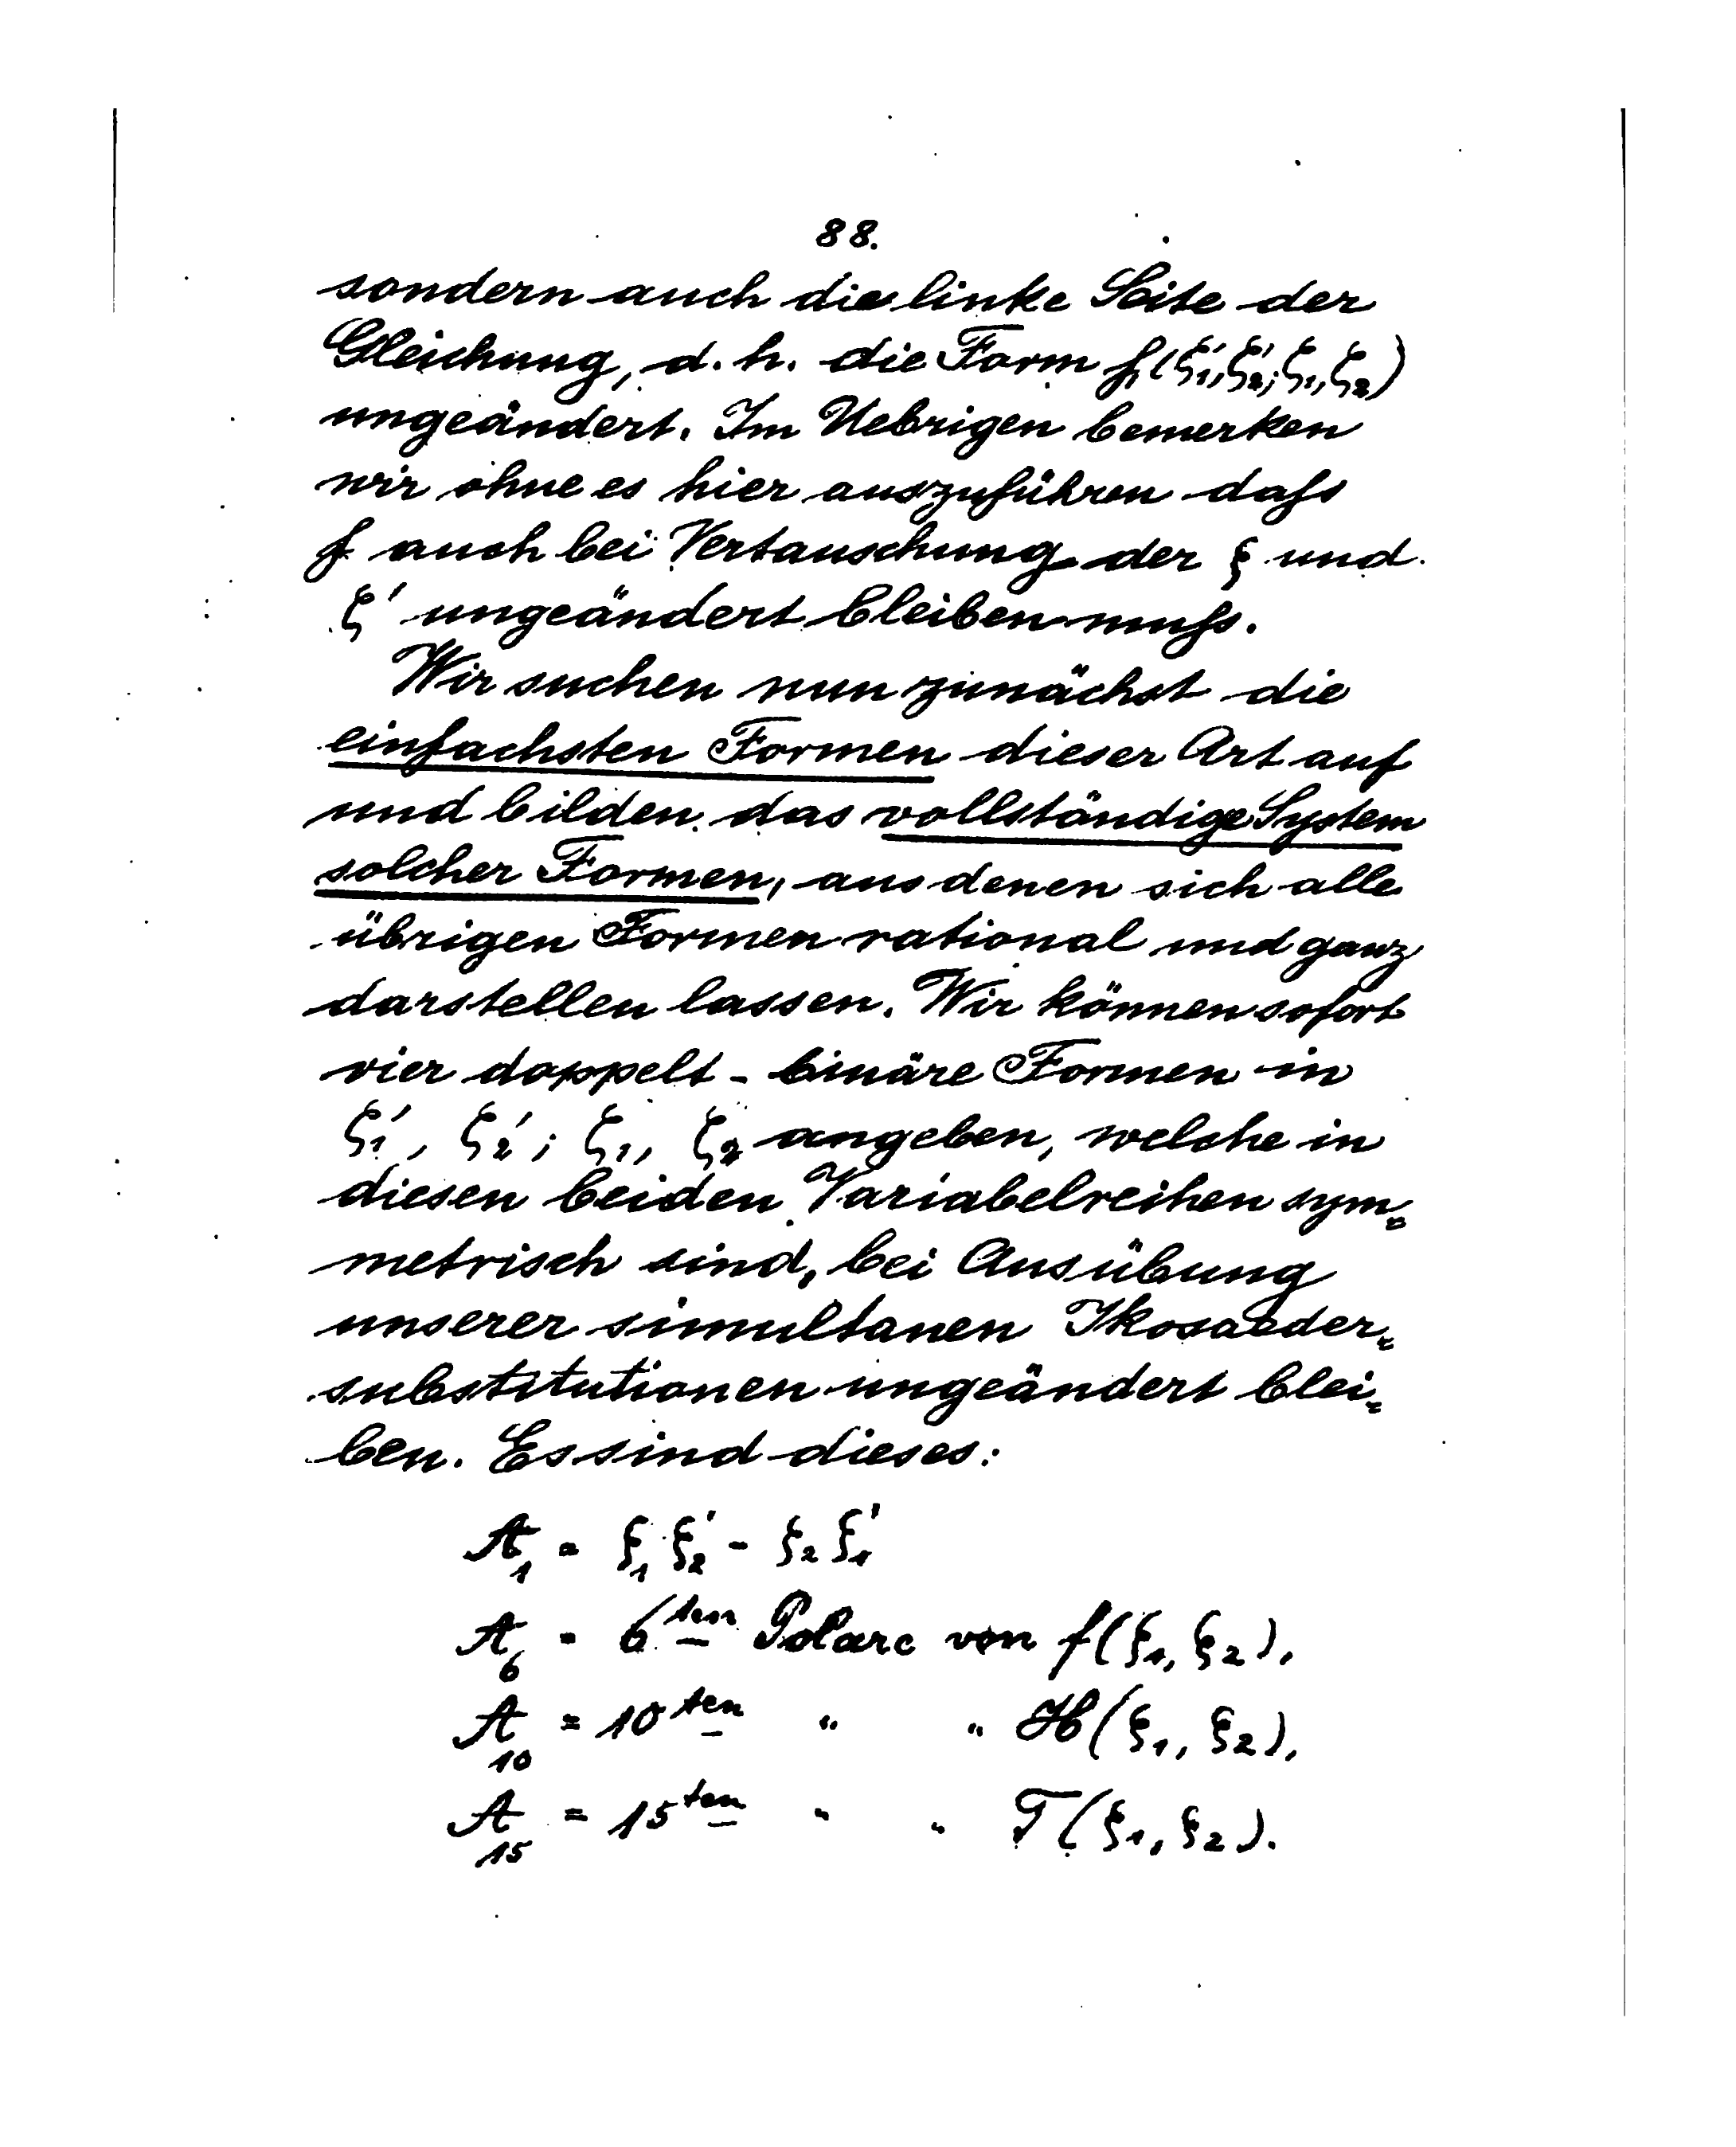 88.
sondern auch die linke Seite der
Gleichung, d. h. die Form f(ζ₁′, ζ₂′; ζ₁, ζ₂)
ungeändert. Im Uebrigen bemerken
wir ohne es hier auszuführen daſs
f auch bei Vertauschung der ξ und
ζ′ ungeändert bleiben muſs.
Wir suchen nun zunächst die
einfachsten Formen dieser Art auf
und bilden das vollständige System
solcher Formen, aus denen sich alle
übrigen Formen rational und ganz
darstellen lassen. Wir können sofort
vier doppelt-binäre Formen in
ζ₁′, ζ₂′; ζ₁, ζ₂ angeben, welche in
diesen beiden Variabelreihen sym=
metrisch sind, bei Ausübung
unserer simultanen Ikosaeder=
substitutionen ungeändert blei=
ben. Es sind dieses:
A₁ = ξ₁ ξ₂′ - ξ₂ ξ₁′
A₆ = 6ten Polare von f(ξ₁, ξ₂),
A₁₀ = 10ten " " H(ξ₁, ξ₂),
A₁₅ = 15ten " " T(ξ₁, ξ₂).